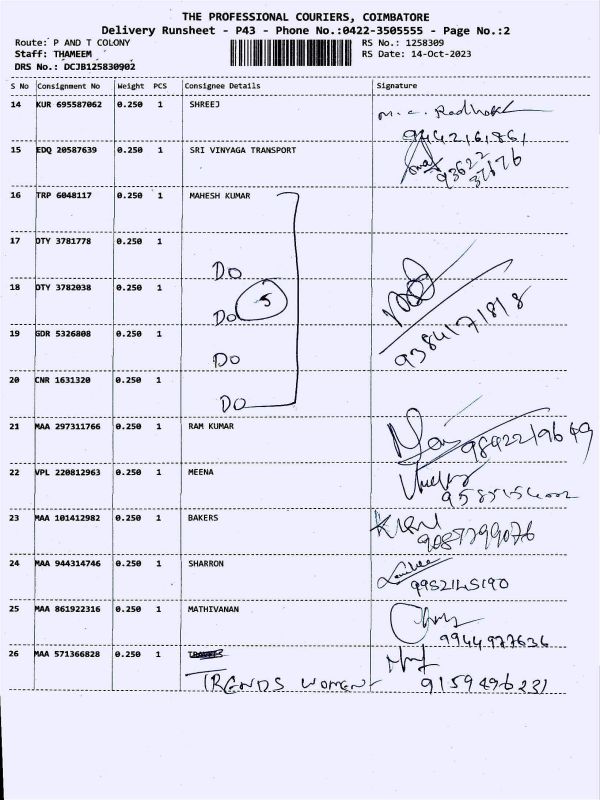 THE PROFESSIONAL COURIERS, COIMBATORE
Delivery Runsheet - P43 - Phone No.:0422-3505555 - Page No.:2
Route: P AND T COLONY RS No.: 1258309
Staff: THAMEEM RS Date: 14-Oct-2023
DRS No.: DCJB125830902
S No Consignment No Weight PCS Consignee Details Signature
14 KUR 695587062 0.250 1 SHREEJ
15 EDQ 20587639 0.250 1 SRI VINYAGA TRANSPORT
93622
37176
16 TRP 6048117 0.250 1 MAHESH KUMAR
17 DTY 3781778 0.250 1
Do
18 DTY 3782038 0.250 1
Do 5
19 GDR 5326808 0.250 1
9384171818
Do
20 CNR 1631320 0.250 1
Do
21 MAA 297311766 0.250 1 RAM KUMAR
9842219649
22 VPL 220812963 0.250 1 MEENA
23 MAA 101412982 0.250 1 BAKERS
24 MAA 944314746 0.250 1 SHARRON
9952145190
25 MAA 861922316 0.250 1 MATHIVANAN
9944977636
26 MAA 571366828 0.250 1
TRENDS WOMENS 9159496231